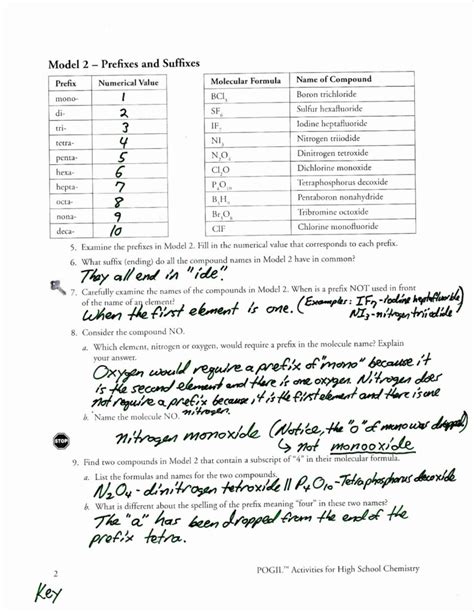 Model 2 – Prefixes and Suffixes
Prefix Numerical Value
mono- 1
di- 2
tri- 3
tetra- 4
penta- 5
hexa- 6
hepta- 7
octa- 8
nona- 9
deca- 10
Molecular Formula Name of Compound
BCl3 Boron trichloride
SF6 Sulfur hexafluoride
IF7 Iodine heptafluoride
NI3 Nitrogen triiodide
N2O4 Dinitrogen tetroxide
Cl2O Dichlorine monoxide
P4O10 Tetraphosphorus decoxide
B5H9 Pentaboron nonahydride
Br3O8 Tribromine octoxide
ClF Chlorine monofluoride
5. Examine the prefixes in Model 2. Fill in the numerical value that corresponds to each prefix.
6. What suffix (ending) do all the compound names in Model 2 have in common?
They all end in "ide"
7. Carefully examine the names of the compounds in Model 2. When is a prefix NOT used in front
of the name of an element? (Examples: IF7-Iodine heptafluoride
When the first element is one. NI3-nitrogen triiodide)
8. Consider the compound NO.
a. Which element, nitrogen or oxygen, would require a prefix in the molecule name? Explain
your answer.
Oxygen would require a prefix of "mono" because it
is the second element and there is one oxygen. Nitrogen does
not require a prefix because it is the first element and there is one
nitrogen.
b. Name the molecule NO.
STOP
nitrogen monoxide (Notice, the "o" of mono was dropped)
↳ not monooxide
9. Find two compounds in Model 2 that contain a subscript of "4" in their molecular formula.
a. List the formulas and names for the two compounds.
N2O4 - dinitrogen tetroxide || P4O10-Tetraphosphorus decoxide
b. What is different about the spelling of the prefix meaning "four" in these two names?
The "a" has been dropped from the end of the
prefix tetra.
2 POGIL™ Activities for High School Chemistry
Key